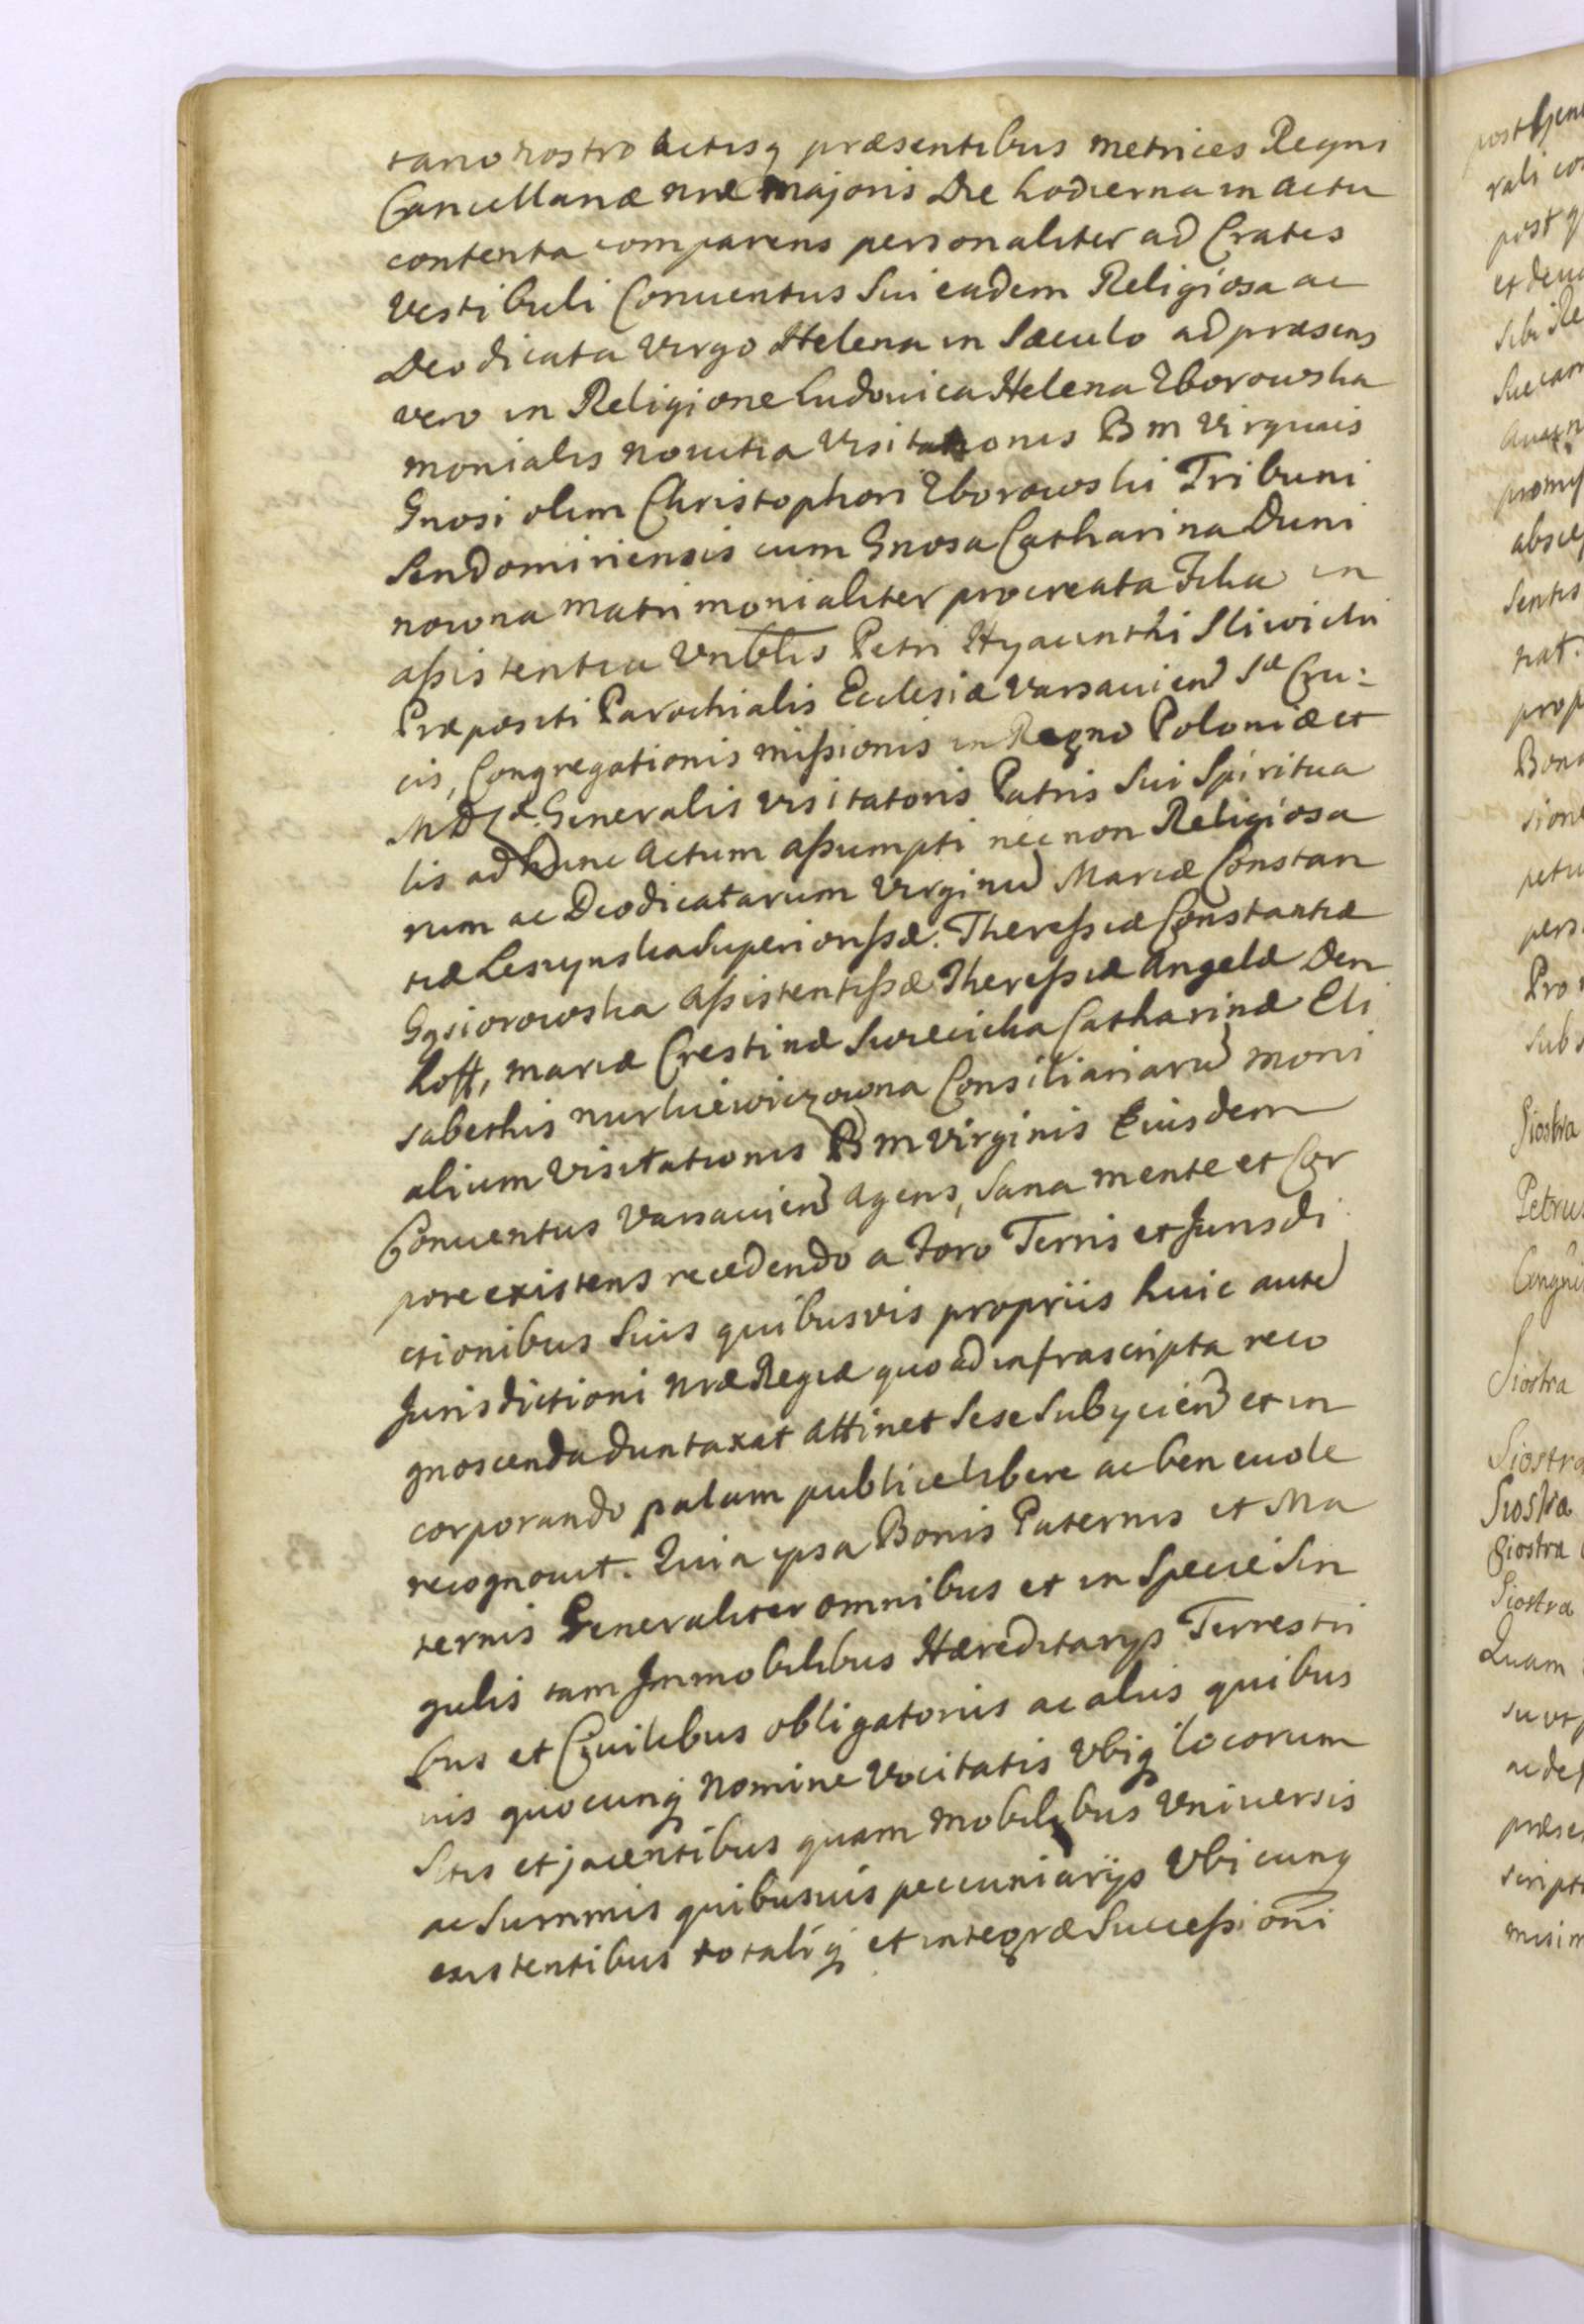 tario nostro Actisq præsentibus Metrices Regni
Cancellariæ nræ Majoris Die hodierna in actu
contenta comparens personaliter ad Crates
Vestibuli Conuentus Sui eadem Religiosa ac
Deodicata Virgo Helena in Sæculo ad præsens
vero in Religione Ludouica Helena Zborowska
monialis nouitia Visitationis B M Virginis
Gnosi olim Christophori Zborowski Tribuni
Sendomiriensis cum Gnosa Catharina Duni
nowna matrimonialiter procreata Filia in
aßistentia Vnblis Petri Hyacinthi Sliwicki
Præpositi Parochialis Ecclesiæ Varsauien Sæ Cru:
cis, Congregationis mißionis in Regno Poloniæ et
M D L æ Generalis Visitatoris Patris Sui Spiritua
lis ad hunc Actum aßumpti nec non Religiosa
rum ac Deodicatarum Virginu Mariæ Constan
tiæ Lesczynska Superiorißæ. Thereßiæ Constantiæ
Gąsiorowska Aßistentißæ Thereßiæ Angelæ Den
hoff, Mariæ Crestinæ Catharinæ Eli
sabethis nurkiewiczowna Consiliariaru moni
alium Visitationis B M Virginis Eiusdem
Conuentus Varsauien agens, Sana mente et Cor
pore existens recedendo a Foro Terris et Jurisdi
ctionibus Suis quibusvis propriis huic aute
Jurisdictioni nræ Regiæ quo ad infrascripta reco
gnoscenda duntaxat attinet Sese Subijcien et in
corporando palam publice libere ac beneuole
recognouit. Quia ipsa Bonis Paternis et Ma
ternis Generaliter omnibus et in Specie Sin
gulis tam Immobilibus Hæreditarijs Terrestri
bus et Ciuilibus obligatoriis ac aliis quibus
uis quocunq Nomine Vocitatis Vbiq locorum
Sitis et jacentibus quam Mobilibus Vniuersis
ac Summis quibusuis pecuniarijs Vbicunq
existentibus totaliq et integræ Succeßioni